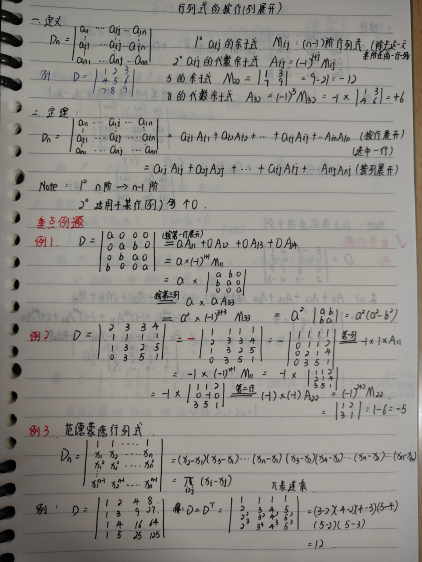 行列式的按行(列展开)
一.定义
Dn = | a11 ... a1j ... a1n |
| ai1 ... aij ... ain |
| an1 ... anj ... ann |
1° aij的余子式 Mij: (n-1)阶行列式
2° aij的代数余子式 Aij = (-1)^{i+j} Mij
例: D = | 1 2 3 |
| 4 5 6 |
| 7 8 9 |
5的余子式 M22 = | 1 3 | = 9-21 = -12
| 7 9 |
8的代数余子式 A32 = (-1)^5 M32 = -1 × | 1 3 | = +6
| 4 6 |
二.定理:
Dn = | a11 ... a1j ... a1n |
| ai1 ... aij ... ain |
| an1 ... anj ... ann |
= ai1Ai1 + ai2Ai2 + ... + aijAij + ... ainAin (按行展开)
(选中一行)
= a1jA1j + a2jA2j + ... + aijAij + ... anjAnj (按列展开)
Note: 1° n阶 → n-1阶
2° 适用于某行(列)多个0.
重点例题
例1. D = | a 0 0 0 |
| 0 a b 0 |
| 0 b a 0 |
| b 0 0 a |
(按第一行展开) = aA11 + 0A12 + 0A13 + 0A14
= a×(-1)^{1+1} M11
= a × | a b 0 |
| b a 0 |
| 0 0 a |
按第三列 = a × a A33
= a² × (-1)^{3+3} M33 = a² | a b | = a²(a²-b²)
| b a |
例2 D = | 2 3 3 4 |
| 1 1 1 1 |
| 1 3 2 5 |
| 0 3 5 1 |
= - | 1 1 1 1 |
| 2 3 3 4 |
| 1 3 2 5 |
| 0 3 5 1 |
= - | 1 1 1 1 |
| 0 1 1 2 |
| 0 2 1 4 |
| 0 3 5 1 |
第一列 -1×1×A11
= -1 × (-1)^{1+1} M11 = -1 × | 1 1 2 |
| 2 1 4 |
| 3 5 1 |
= -1 × | 1 1 2 |
| 0 -1 0 |
| 3 5 1 |
第二行 (-1)×(-1)A22 = (-1)^{2+2} M22
= | 1 2 | = 1-6 = -5
| 3 1 |
例3. 范德蒙德行列式
Dn = | 1 1 ... 1 |
| x1 x2 ... xn |
| x1² x2² ... xn² |
| x1^{n-1} x2^{n-1} ... xn^{n-1} |
= (x2-x1)(x3-x1)...(xn-x1)(x3-x2)(x4-x2)...(xn-x2)...
= π (xi-xj)
π表连乘.
例: D = | 1 2 4 8 |
| 1 3 9 27 |
| 1 4 16 64 |
| 1 5 25 125 |
解: D = D^T = | 1 1 1 1 |
| 2 3 4 5 |
| 2² 3² 4² 5² |
| 2³ 3³ 4³ 5³ |
= (3-2)(4-2)(4-3)(5-4)
(5-2)(5-3)
= 12.